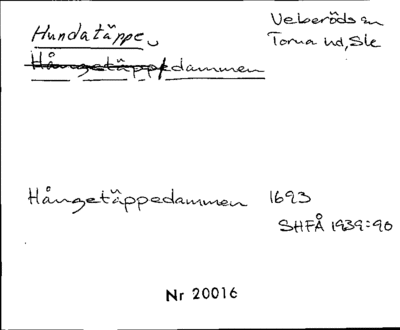 Hundatäppe
Veberöds sn
Torna hd, Ske
Hångetäppedammen
Hångetäppedammen 1693
SHFÅ 1939:90
Nr 20016